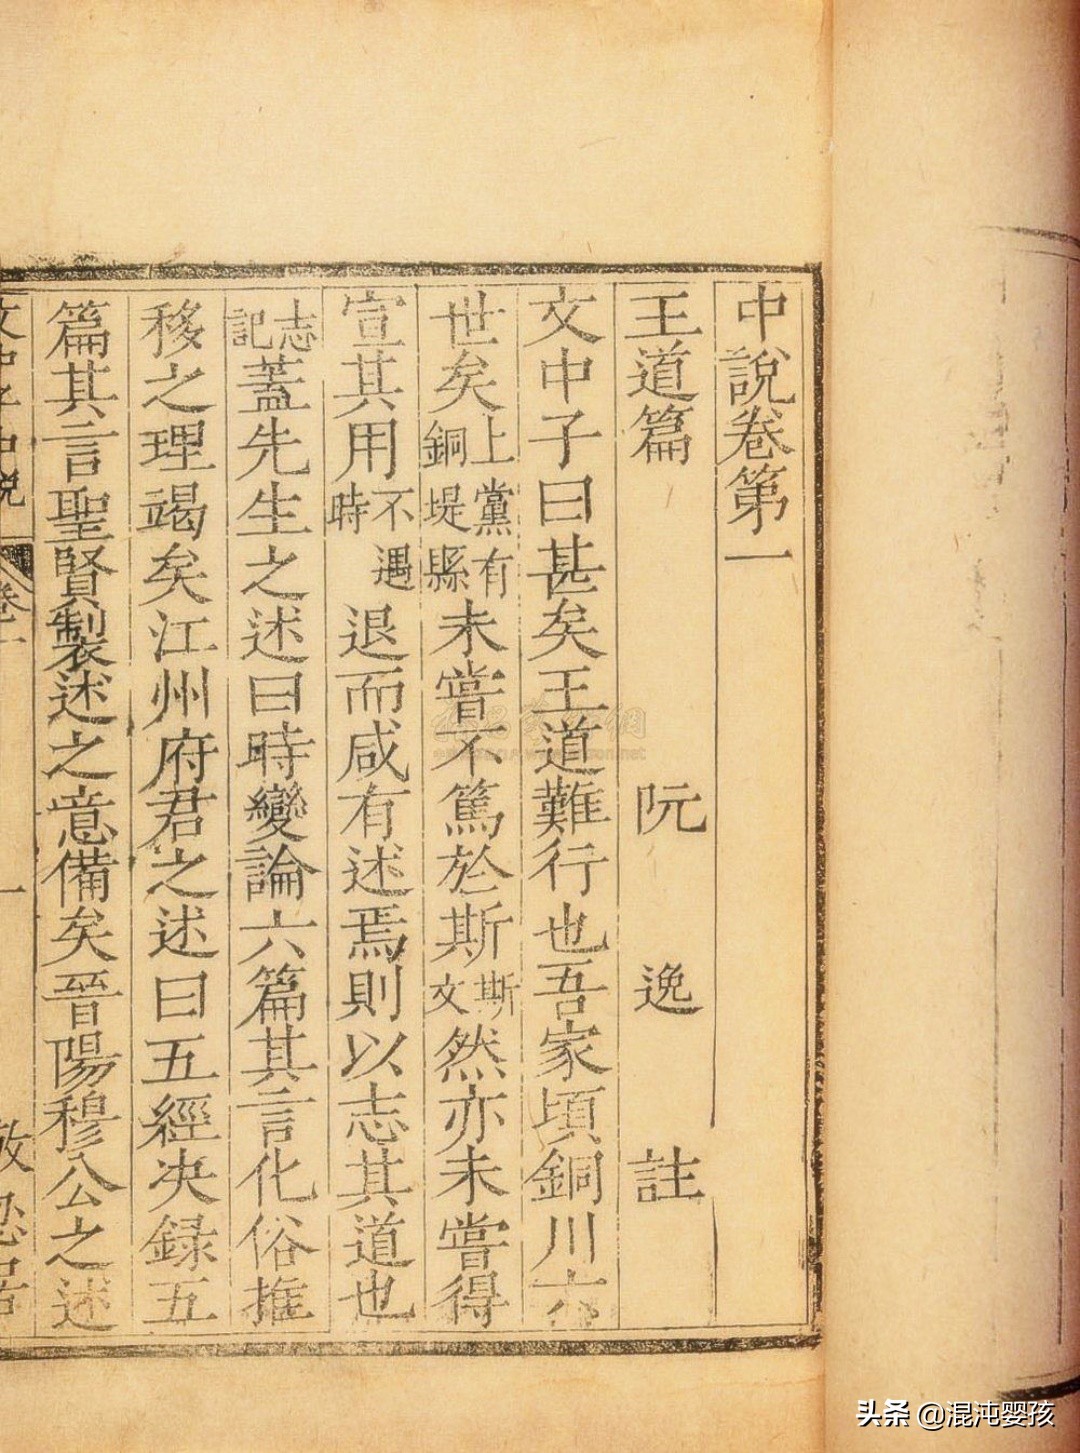 中說卷第一
王道篇 阮 逸 註
文中子曰甚矣王道難行也吾家頃銅川六
世矣上黨有銅堤縣未嘗不篤於斯斯文然亦未嘗得
宣其用不遇時退而咸有述焉則以志其道也
志記蓋先生之述曰時變論六篇其言化俗推
移之理竭矣江州府君之述曰五經決録五
篇其言聖賢製述之意備矣晉陽穆公之述
文中子中說 卷一
一
头条 @混沌婴孩